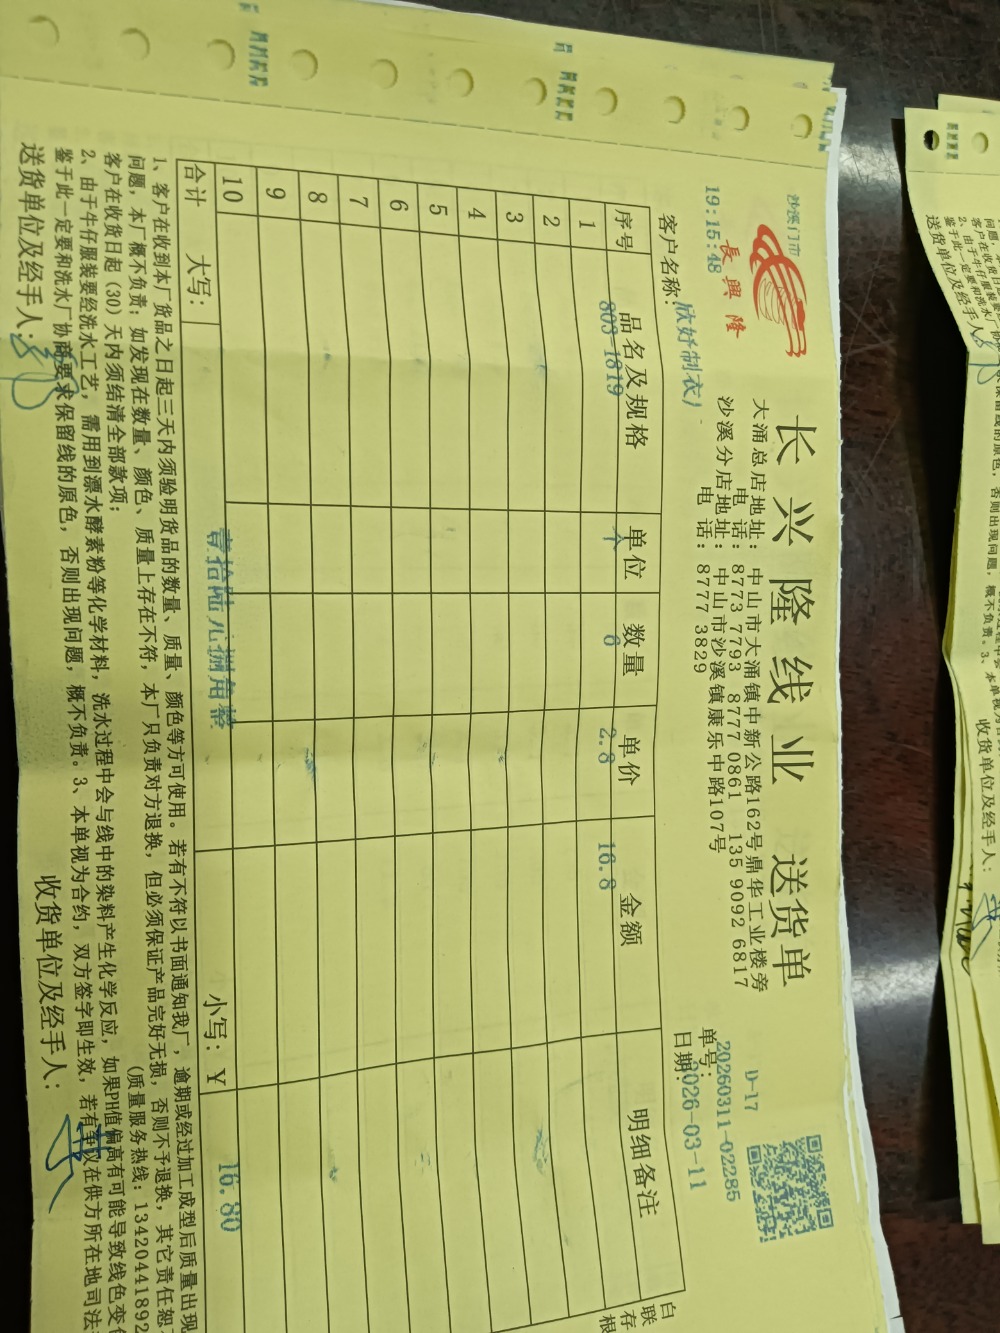 沙溪门市
19:15:48
長興隆
长兴隆线业 送货单
大涌总店地址：中山市大涌镇中新公路162号鼎华工业楼旁
电 话：8773 7793 8777 0861 135 9092 6817
沙溪分店地址：中山市沙溪镇康乐中路107号
电 话：8777 3829
D-17
单号：20260311-02285
日期：2026-03-11
客户名称：欣妤制衣厂
序号 品名及规格 单位 数量 单价 金额 明细备注
1 803-1819 个 6 2.8 16.8
2
3
4
5
6
7
8
9
10
合计 大写： 壹拾陆元捌角整 小写：￥ 16.80
白联存根
1、客户在收到本厂货品之日起三天内须验明货品的数量、质量、颜色等方可使用。若有不符以书面通知我厂，逾期或经过加工成型后质量出现
问题，本厂概不负责；如发现在数量、颜色、质量上存在不符，本厂只负责对方退换，但必须保证产品完好无损，否则不予退换，其它责任恕
客户在收货日起（30）天内须结清全部款项； （质量服务热线：13420441892
2、由于牛仔服装要经洗水工艺，需用到漂水酵素粉等化学材料，洗水过程中会与线中的染料产生化学反应，如果PH值偏高有可能导致线色变
鉴于此一定要和洗水厂协商要求保留线的原色，否则出现问题，概不负责。3、本单视为合约，双方签字即生效，若有争议在供方所在地司法
送货单位及经手人： 收货单位及经手人：
送货单位及经手人 收货单位及经手人：